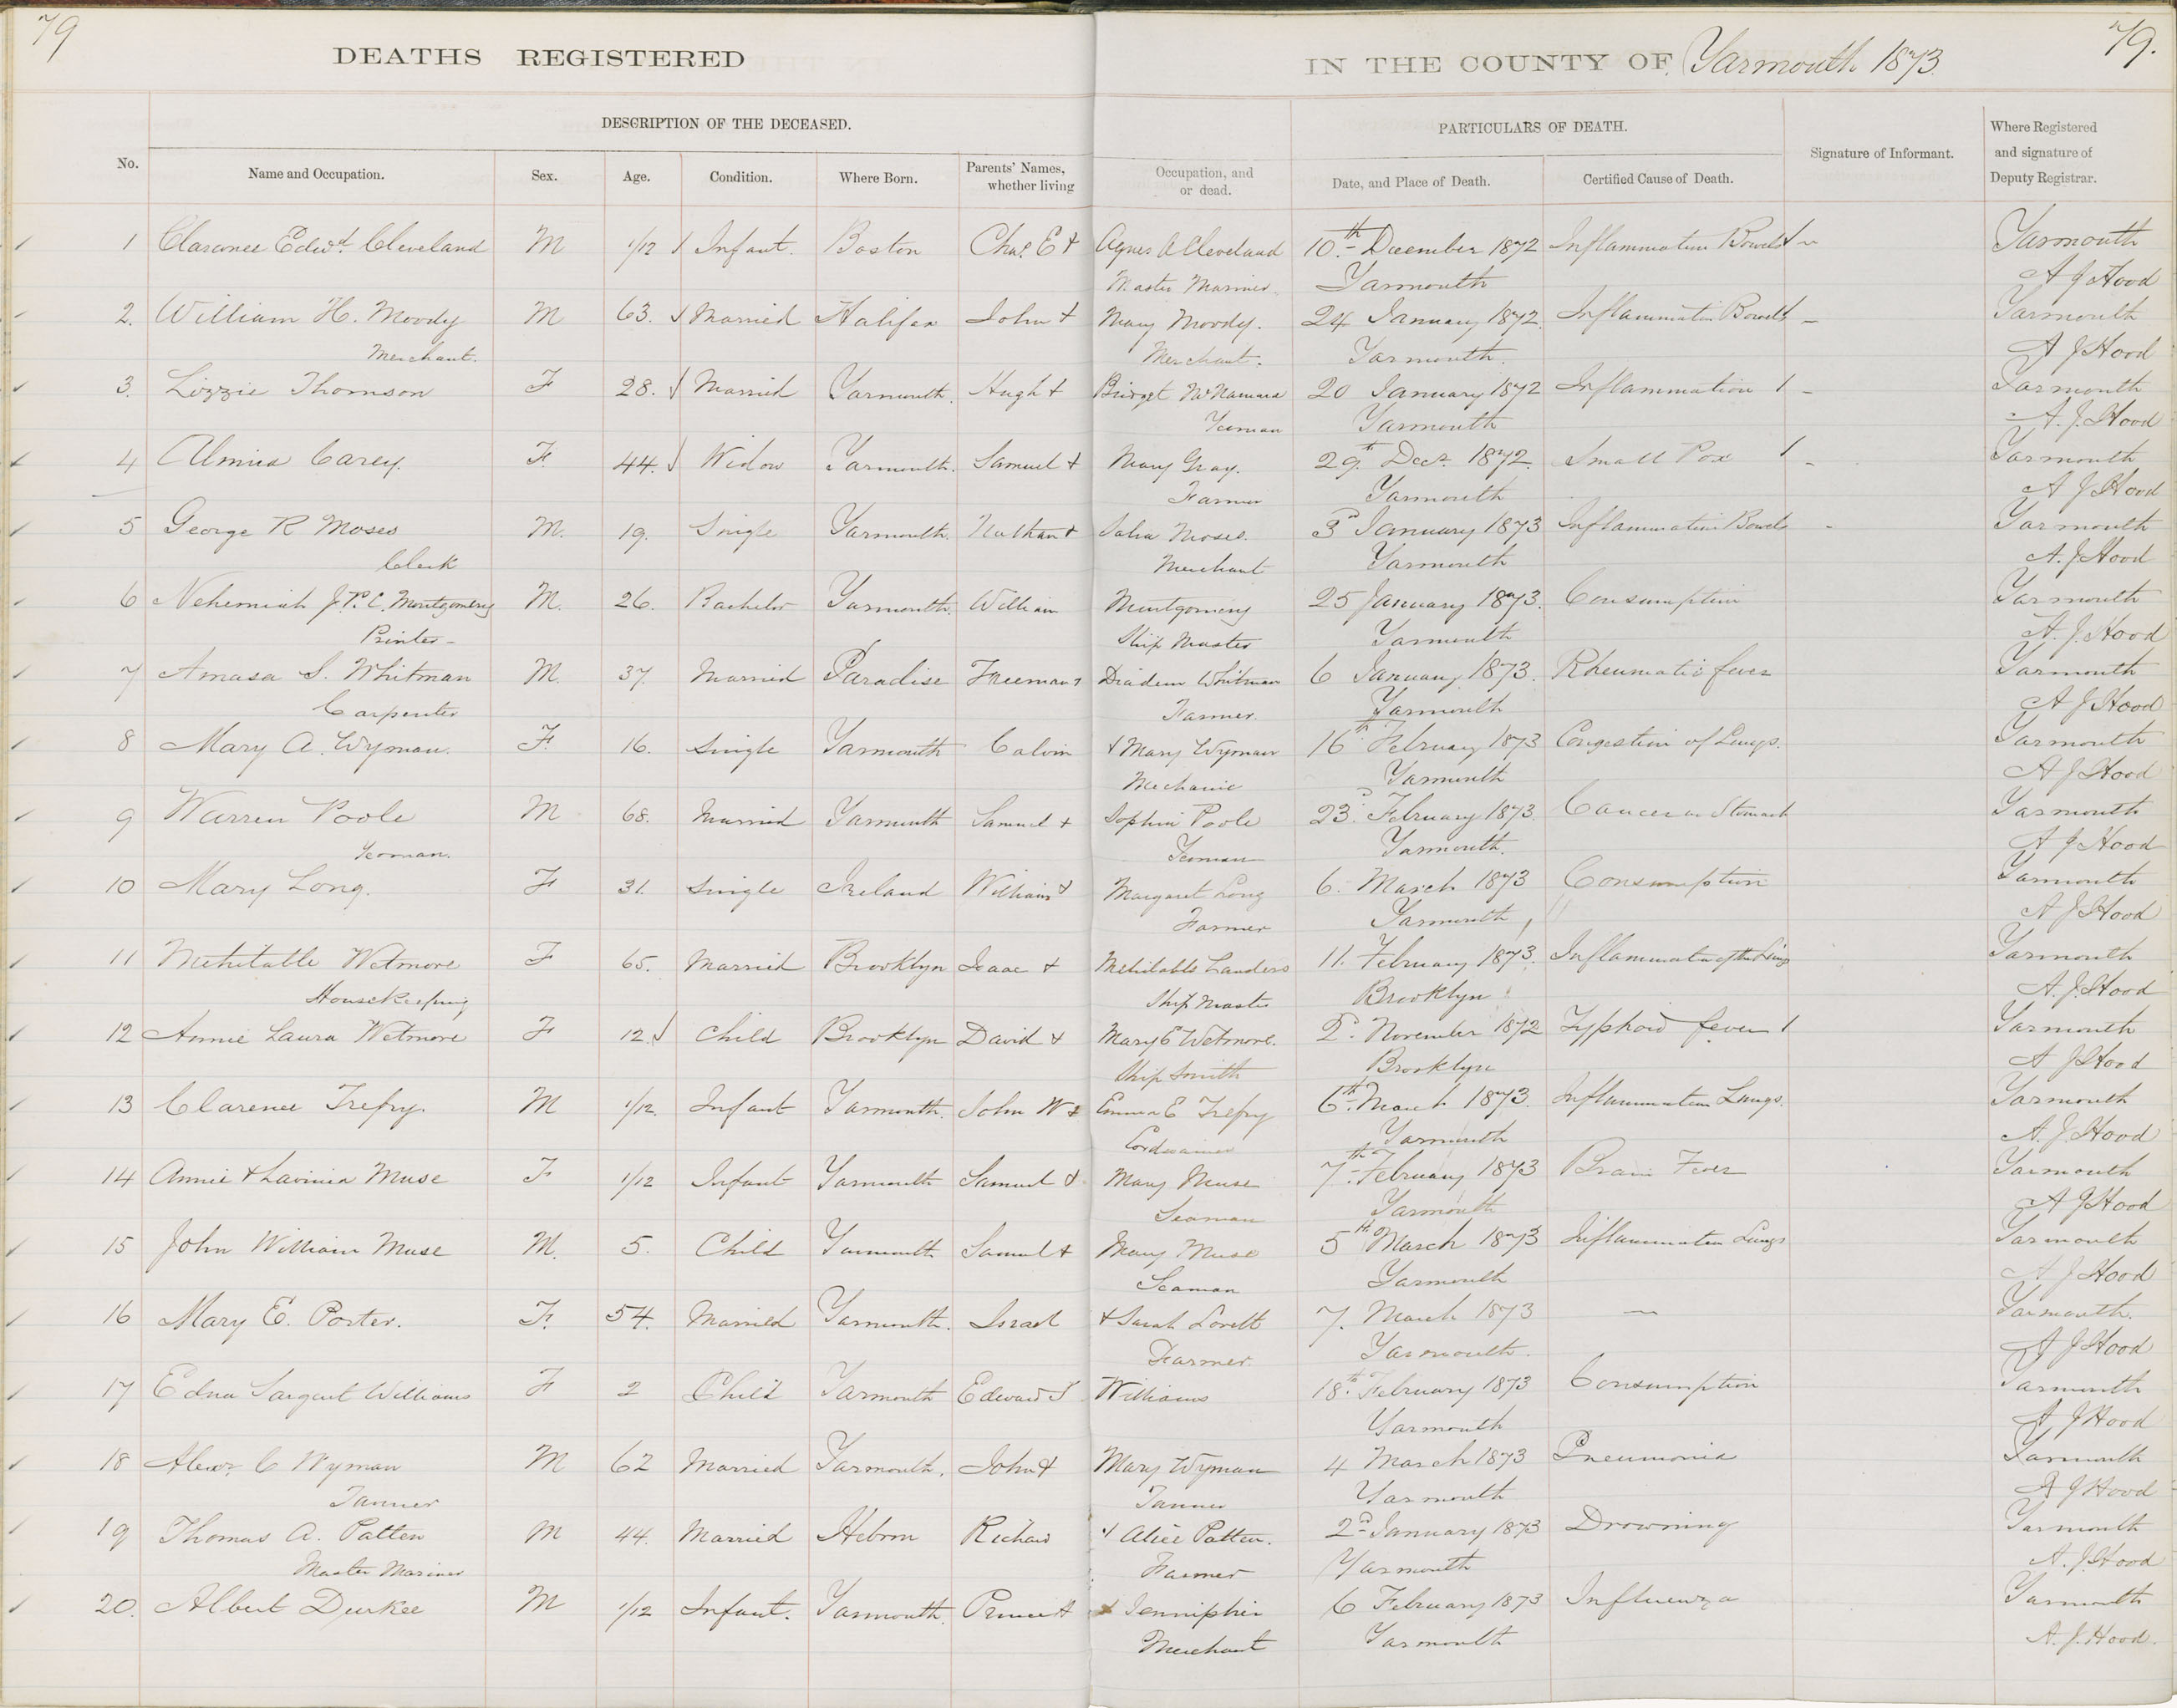 79
79.
DEATHS REGISTERED IN THE COUNTY OF Yarmouth 1873
DESCRIPTION OF THE DECEASED. PARTICULARS OF DEATH.
No. Name and Occupation. Sex. Age. Condition. Where Born. Parents' Names, whether living Occupation, and or dead. Date, and Place of Death. Certified Cause of Death. Signature of Informant. Where Registered and signature of Deputy Registrar.
1 Clarence Edwd. Cleveland M 1/12 Infant. Boston Chas. E + Agnes A Cleveland 10th December 1872 Inflammation Bowels Yarmouth
Master Mariner Yarmouth A J Hood
2. William H. Moody M 63. Married Halifax John + Mary Moody. 24 January 1872. Inflammation Bowels Yarmouth
Merchant. Merchant. Yarmouth. A J Hood
3. Lizzie Thomson F 28. Married Yarmouth. Hugh + Bridget McNamara 20 January 1872 Inflammation Yarmouth
Yeoman Yarmouth A. J. Hood
4 Almira Carey. F. 44. Widow Yarmouth. Samuel + Mary Gray. 29th Decr. 1872. Small Pox Yarmouth
Farmer Yarmouth A J Hood
5 George R Moses M. 19. Single Yarmouth. Nathan + Moses. 3d January 1873 Inflammation Bowels Yarmouth
Clerk Merchant Yarmouth A. J Hood
6 Nehemiah J. P. C. Montgomery M. 26. Bachelor Yarmouth. William Montgomery 25 January 1873. Consumption Yarmouth
Printer - Ship Master Yarmouth A. J. Hood
7 Amasa S. Whitman M. 37. Married Paradise Freeman + Diadem Whitman 6 January 1873. Rheumatic fever Yarmouth
Carpenter Farmer. Yarmouth A J Hood
8 Mary A. Wyman. F 16. Single Yarmouth Calvin + Mary Wyman 16th February 1873 Congestion of Lungs. Yarmouth
Mechanic Yarmouth A J Hood
9 Warren Poole M 68. Married Yarmouth Samuel + Sophia Poole 23d February 1873. Cancer in Stomach Yarmouth
Yeoman. Yeoman Yarmouth. A J Hood
10 Mary Long. F 31. Single Ireland William + Margaret Long 6. March 1873 Consumption Yarmouth
Farmer Yarmouth A J Hood
11 Mehitable Wetmore F 65. Married Brooklyn Isaac + Mehitable Landers 11. February 1873. Inflammation of the Lungs Yarmouth
Housekeeping Ship Master Brooklyn A. J. Hood
12 Annie Laura Wetmore F 12. Child Brooklyn David + Mary E Wetmore. 2d. November 1872 Typhoid fever Yarmouth
Ship Smith Brooklyn A J Hood
13 Clarence Trefry. M 1/12. Infant Yarmouth. John W + Emma E Trefry 6th. March 1873. Inflammation Lungs. Yarmouth
Cordwainer Yarmouth A. J. Hood
14 Annie + Lavinia Muse F 1/12 Infant Yarmouth Samuel + Mary Muse 7th February 1873 Brain Fever Yarmouth
Seaman Yarmouth A J Hood
15 John William Muse M. 5. Child Yarmouth Samuel + Mary Muse 5th March 1873 Inflammation Lungs Yarmouth
Seaman Yarmouth A J Hood
16 Mary E. Porter. F. 54. Married Yarmouth. Israel + Sarah Lovett 7. March 1873 — Yarmouth.
Farmer. Yarmouth. A J Hood
17 Edna Sargent Williams F 2 Child Yarmouth Edward T Williams 18th. February 1873 Consumption Yarmouth
Yarmouth A J Hood
18 Alexr. C Wyman M 62 Married Yarmouth. John + Mary Wyman 4 March 1873 Pneumonia Yarmouth
Tanner Tanner Yarmouth A J Hood
19 Thomas A. Patten M 44. Married Hebron Richard + Alice Patten. 2d January 1873 Drowning Yarmouth
Master Mariner Farmer Yarmouth A. J. Hood
20. Albert Durkee M 1/12 Infant. Yarmouth. Prince H + 6 February 1873 Influenza Yarmouth
Merchant Yarmouth A. J. Hood.